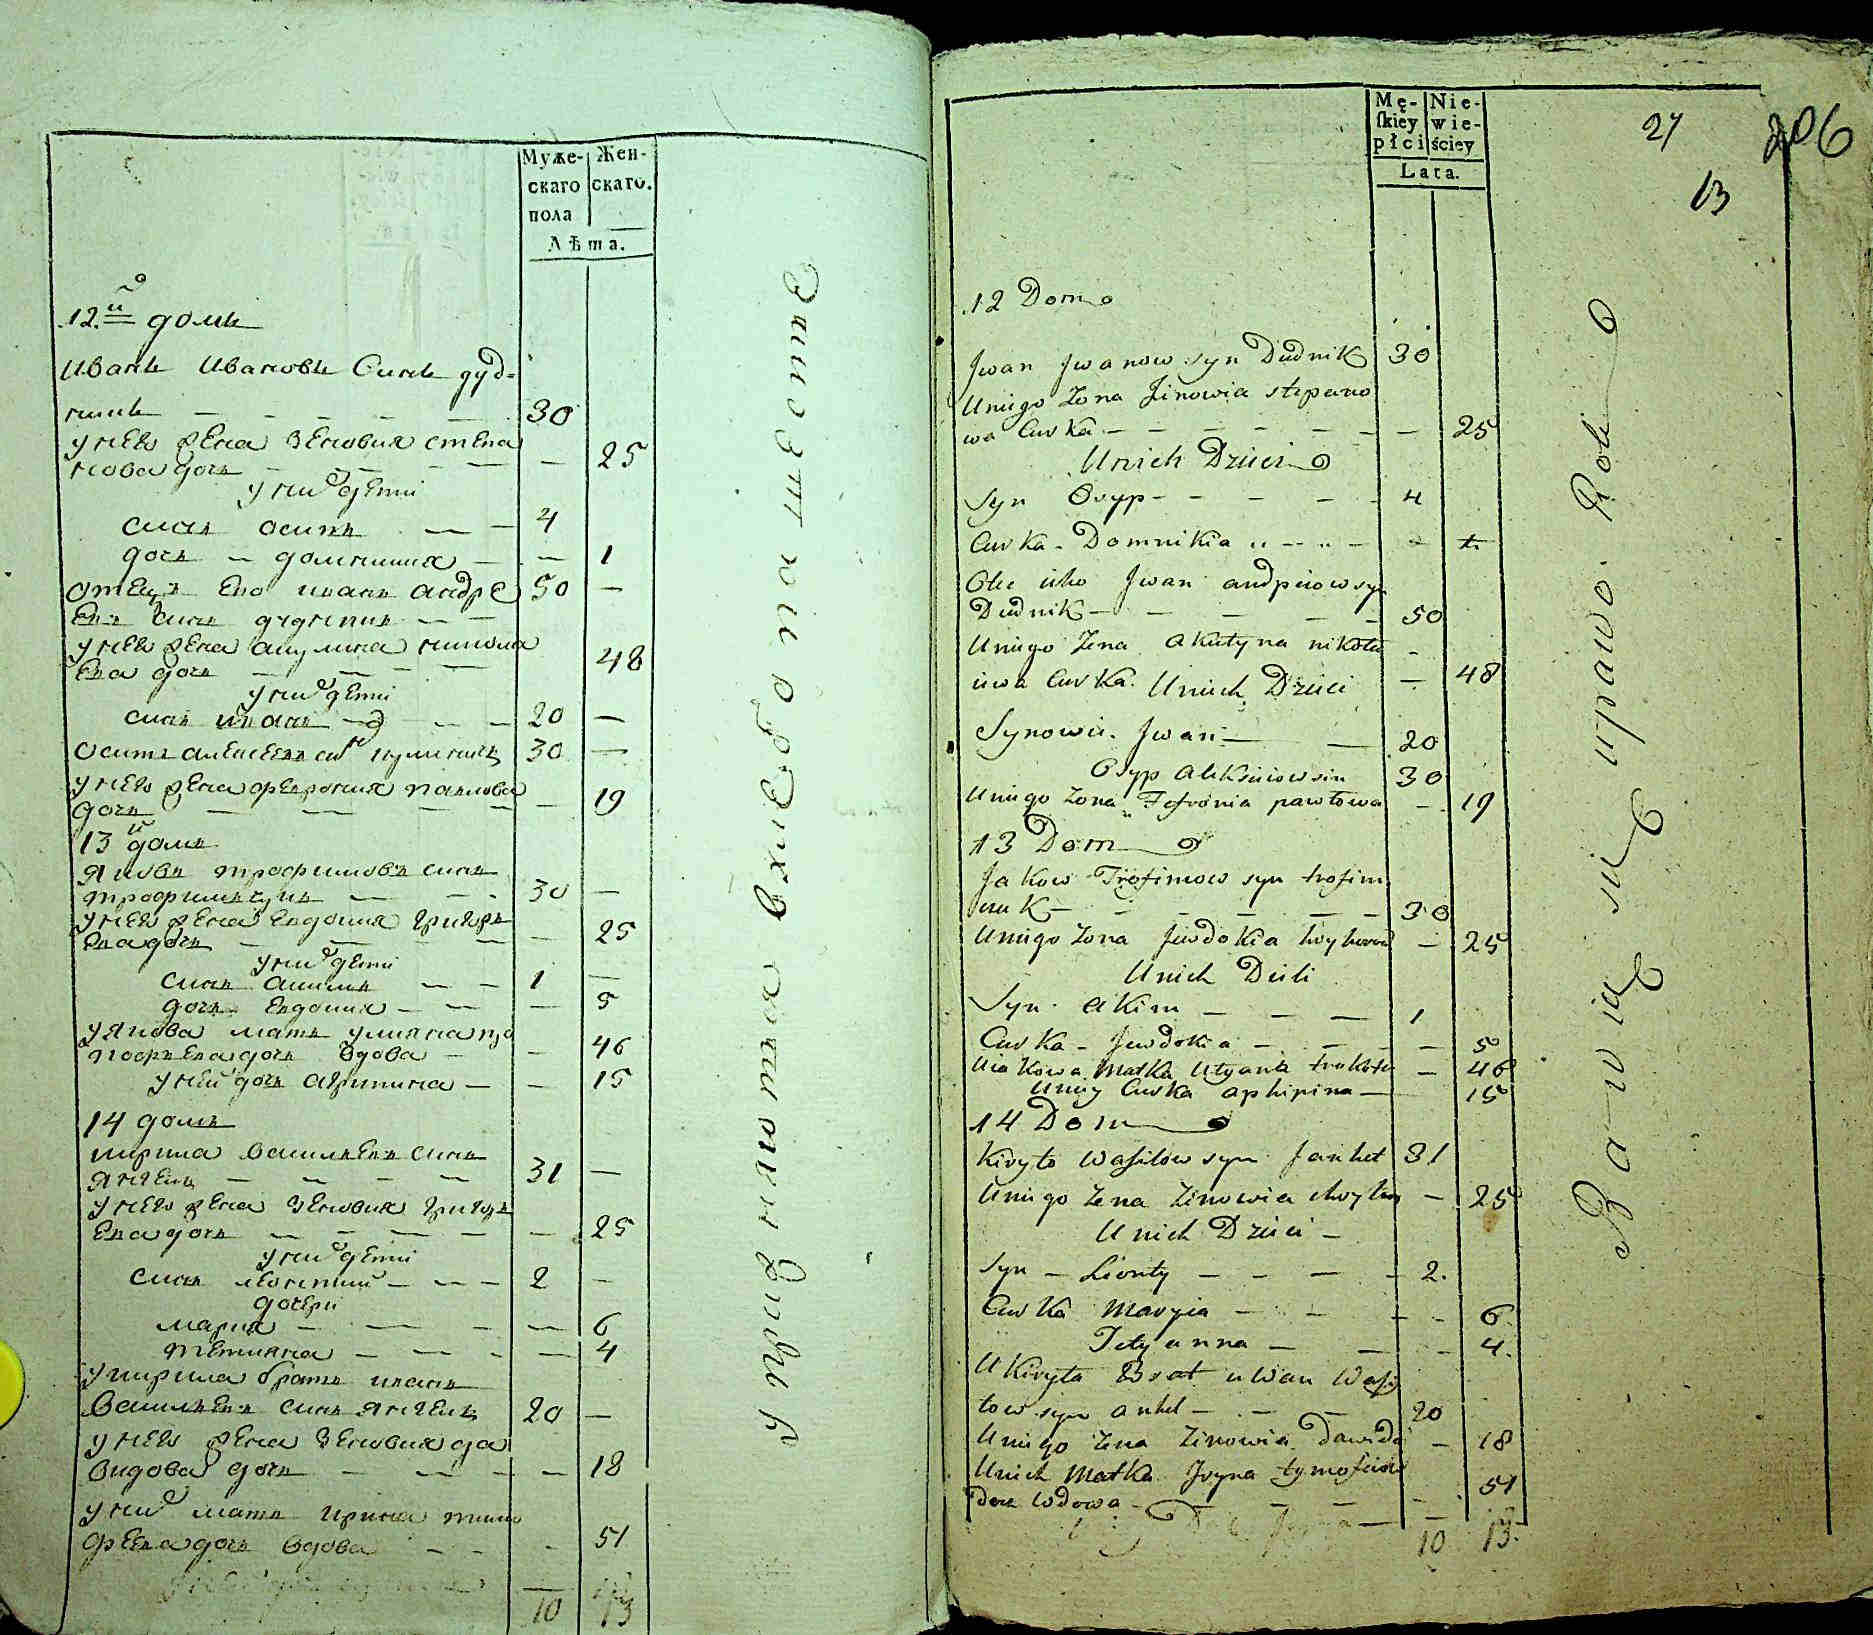 Муже-
скаго
пола
Жен-
скаго.
Лѣта.
12.й домъ
Иванъ Ивановъ Синъ дуд-
никъ — 30
у него жена Зеновия степа
нова дочь — 25
у них дети
синъ осипъ — 4
дочь — домникия — 1
отецъ его иванъ андре 50 —
евъ синъ дудникъ —
у него жена акулина никола
ева дочь — 48
у них дети
синъ иванъ — 20 —
осипъ алексеевъ синъ 30 —
у него жена феврония павлова
дочь — 19
13й домъ
яковъ трофимовъ синъ
трофимчукъ — 30 —
у него жена евдокия григорь
ева дочь — 25
у них дети
синъ акимъ — 1 —
дочь евдокия — 5
у якова мать улияна про
кофьева дочь вдова — 46
у ней дочь агрипина — 15
14 домъ
кирила василевъ синъ
янчецъ — 31 —
у него жена Зеновия григорь
ева дочь — 25
у них дети
синъ леонтий — 2 —
дочери
мария — 6
тетияна — 4
у кирила братъ иванъ
василевъ синъ янчецъ 20 —
у него жена Зеновия да
видова дочь — 18
у них мать ирина тимо
фѣева дочь вдова — 51
10 13
упражняются в хлебопашестве
Mę-
skiey
płci
Nie-
wie-
ściey
Lata.
27
206
13
12 Dom
Jwan Jwanow syn Dudnik 30
Uniego Zona Zinowia stepano
wa Curka — 25
Unich Dzieci
Syn Osyp — 4
Curka - Domnikia — 1
Otec ieho Jwan andreiow syn
Dudnik — 50
Uniego Zena akulyna nikoła
iewa Curka. — 48
Unich Dzieci
Synowie. Jwan — 20
Osyp alekseiow sin 30
Uniego Zona Fefronia pawłowa — 19
13 Dom
Jakow Trofimow syn trofim
czuk — 30
Uniego Zona Jewdokia hryhorow — 25
Unich Dieti
Syn akim — 1
Curka - Jewdokia — 5
Uiakowa Matka Ulyana prokofie — 46
Uniey Curka ahripina — 15
14 Dom
Kiryło Wasilow syn Janhet 31
Uniego Zena Zinowia hryhor — 25
Unich Dzieci —
Syn — Lionty — 2.
Curka Maryia — 6.
Tetyanna — 4.
Ukiryła Brat iwan Wasi
low syn anhel — 20
Uniego Zena Zinowia Dawido — 18
Unich Matka Jryna tymofieiow
Wdowa — 51
10 13.
Bawią się uprawą Roli